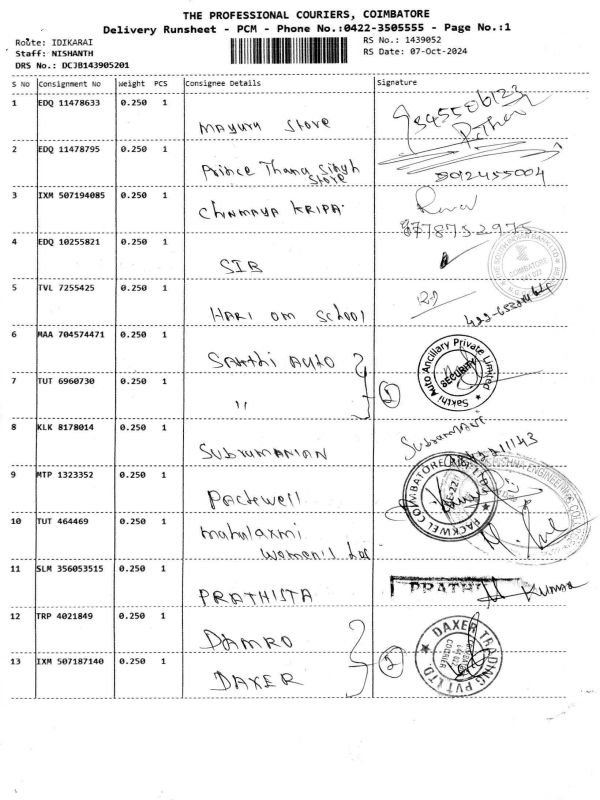 THE PROFESSIONAL COURIERS, COIMBATORE
Delivery Runsheet - PCM - Phone No.:0422-3505555 - Page No.:1
Route: IDIKARAI
RS No.: 1439052
Staff: NISHANTH
RS Date: 07-Oct-2024
DRS No.: DCJB143905201
S No Consignment No Weight PCS Consignee Details Signature
1 EDQ 11478633 0.250 1
Mayura Store
2 EDQ 11478795 0.250 1
Prince Thanga Singh
Store
3 IXM 507194085 0.250 1
CHINMAYA KRIPA
8778752975
4 EDQ 10255821 0.250 1
SIB
COIMBATORE
5 TVL 7255425 0.250 1
HARI OM SCHOOL
6 MAA 704574471 0.250 1
SAKTHI AUTO
Sakthi Auto Ancillary Private Limited
SECURITY
7 TUT 6960730 0.250 1
"
2
8 KLK 8178014 0.250 1
SUBRAMANIAN
9 MTP 1323352 0.250 1
Packwell
10 TUT 464469 0.250 1
mahalaxmi
11 SLM 356053515 0.250 1
PRATHISTA
Kumar
12 TRP 4021849 0.250 1
DAMRO
2
DAXER TRADING PVT LTD
13 IXM 507187140 0.250 1
DAXER